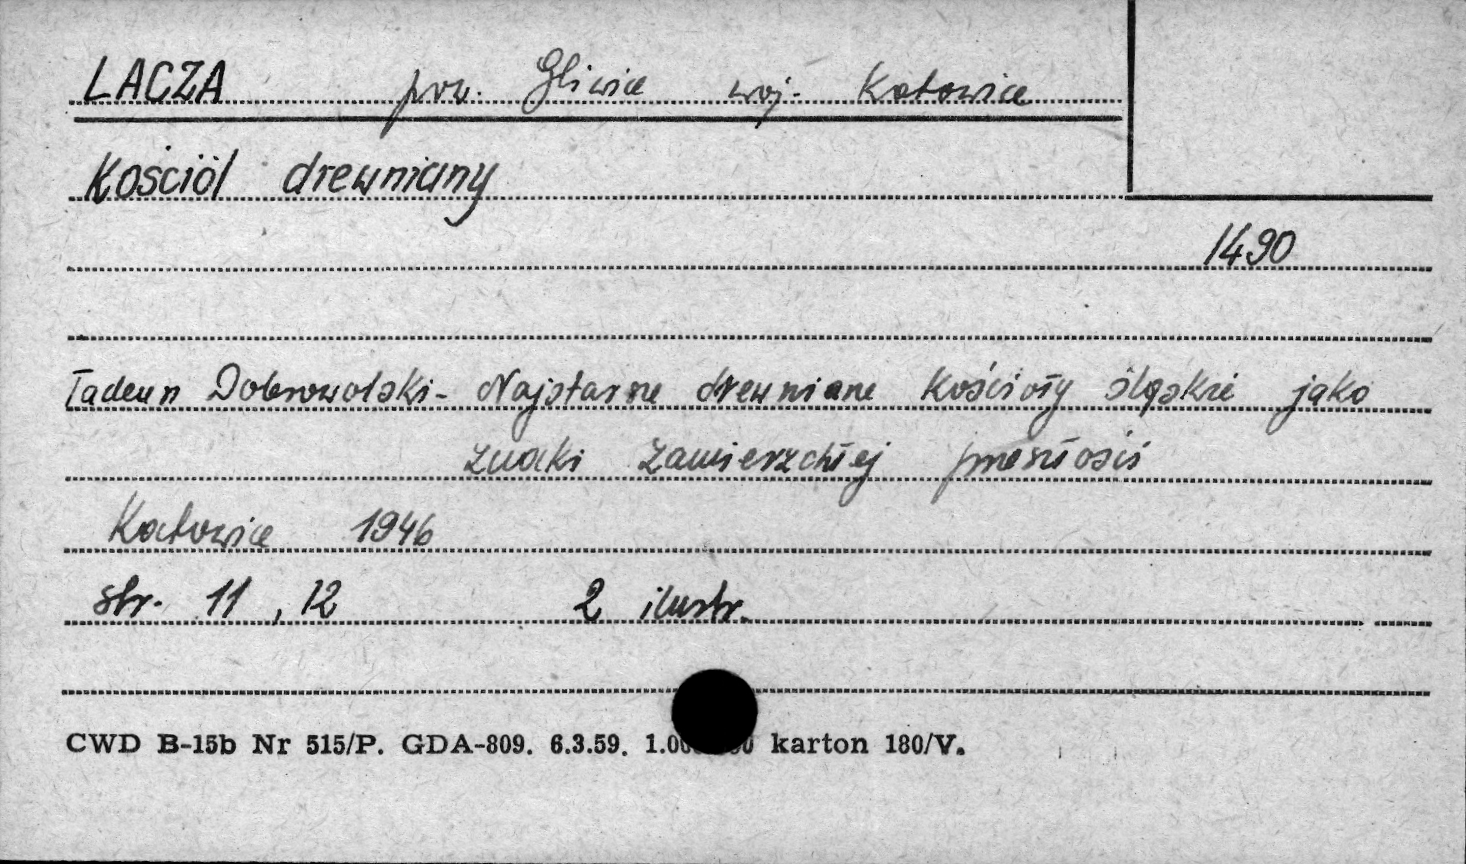 LACZA pow. Gliwice woj. Katowice
Kościół drewniany
1490
Tadeusz Dobrowolski - Najstarsze drewniane Kościoły śląskie jako
znaki zamierzchłej przeszłości
Katowice 1946
str. 11, 12 2 ilustr.
CWD B-15b Nr 515/P. GDA-809. 6.3.59. karton 180/V.